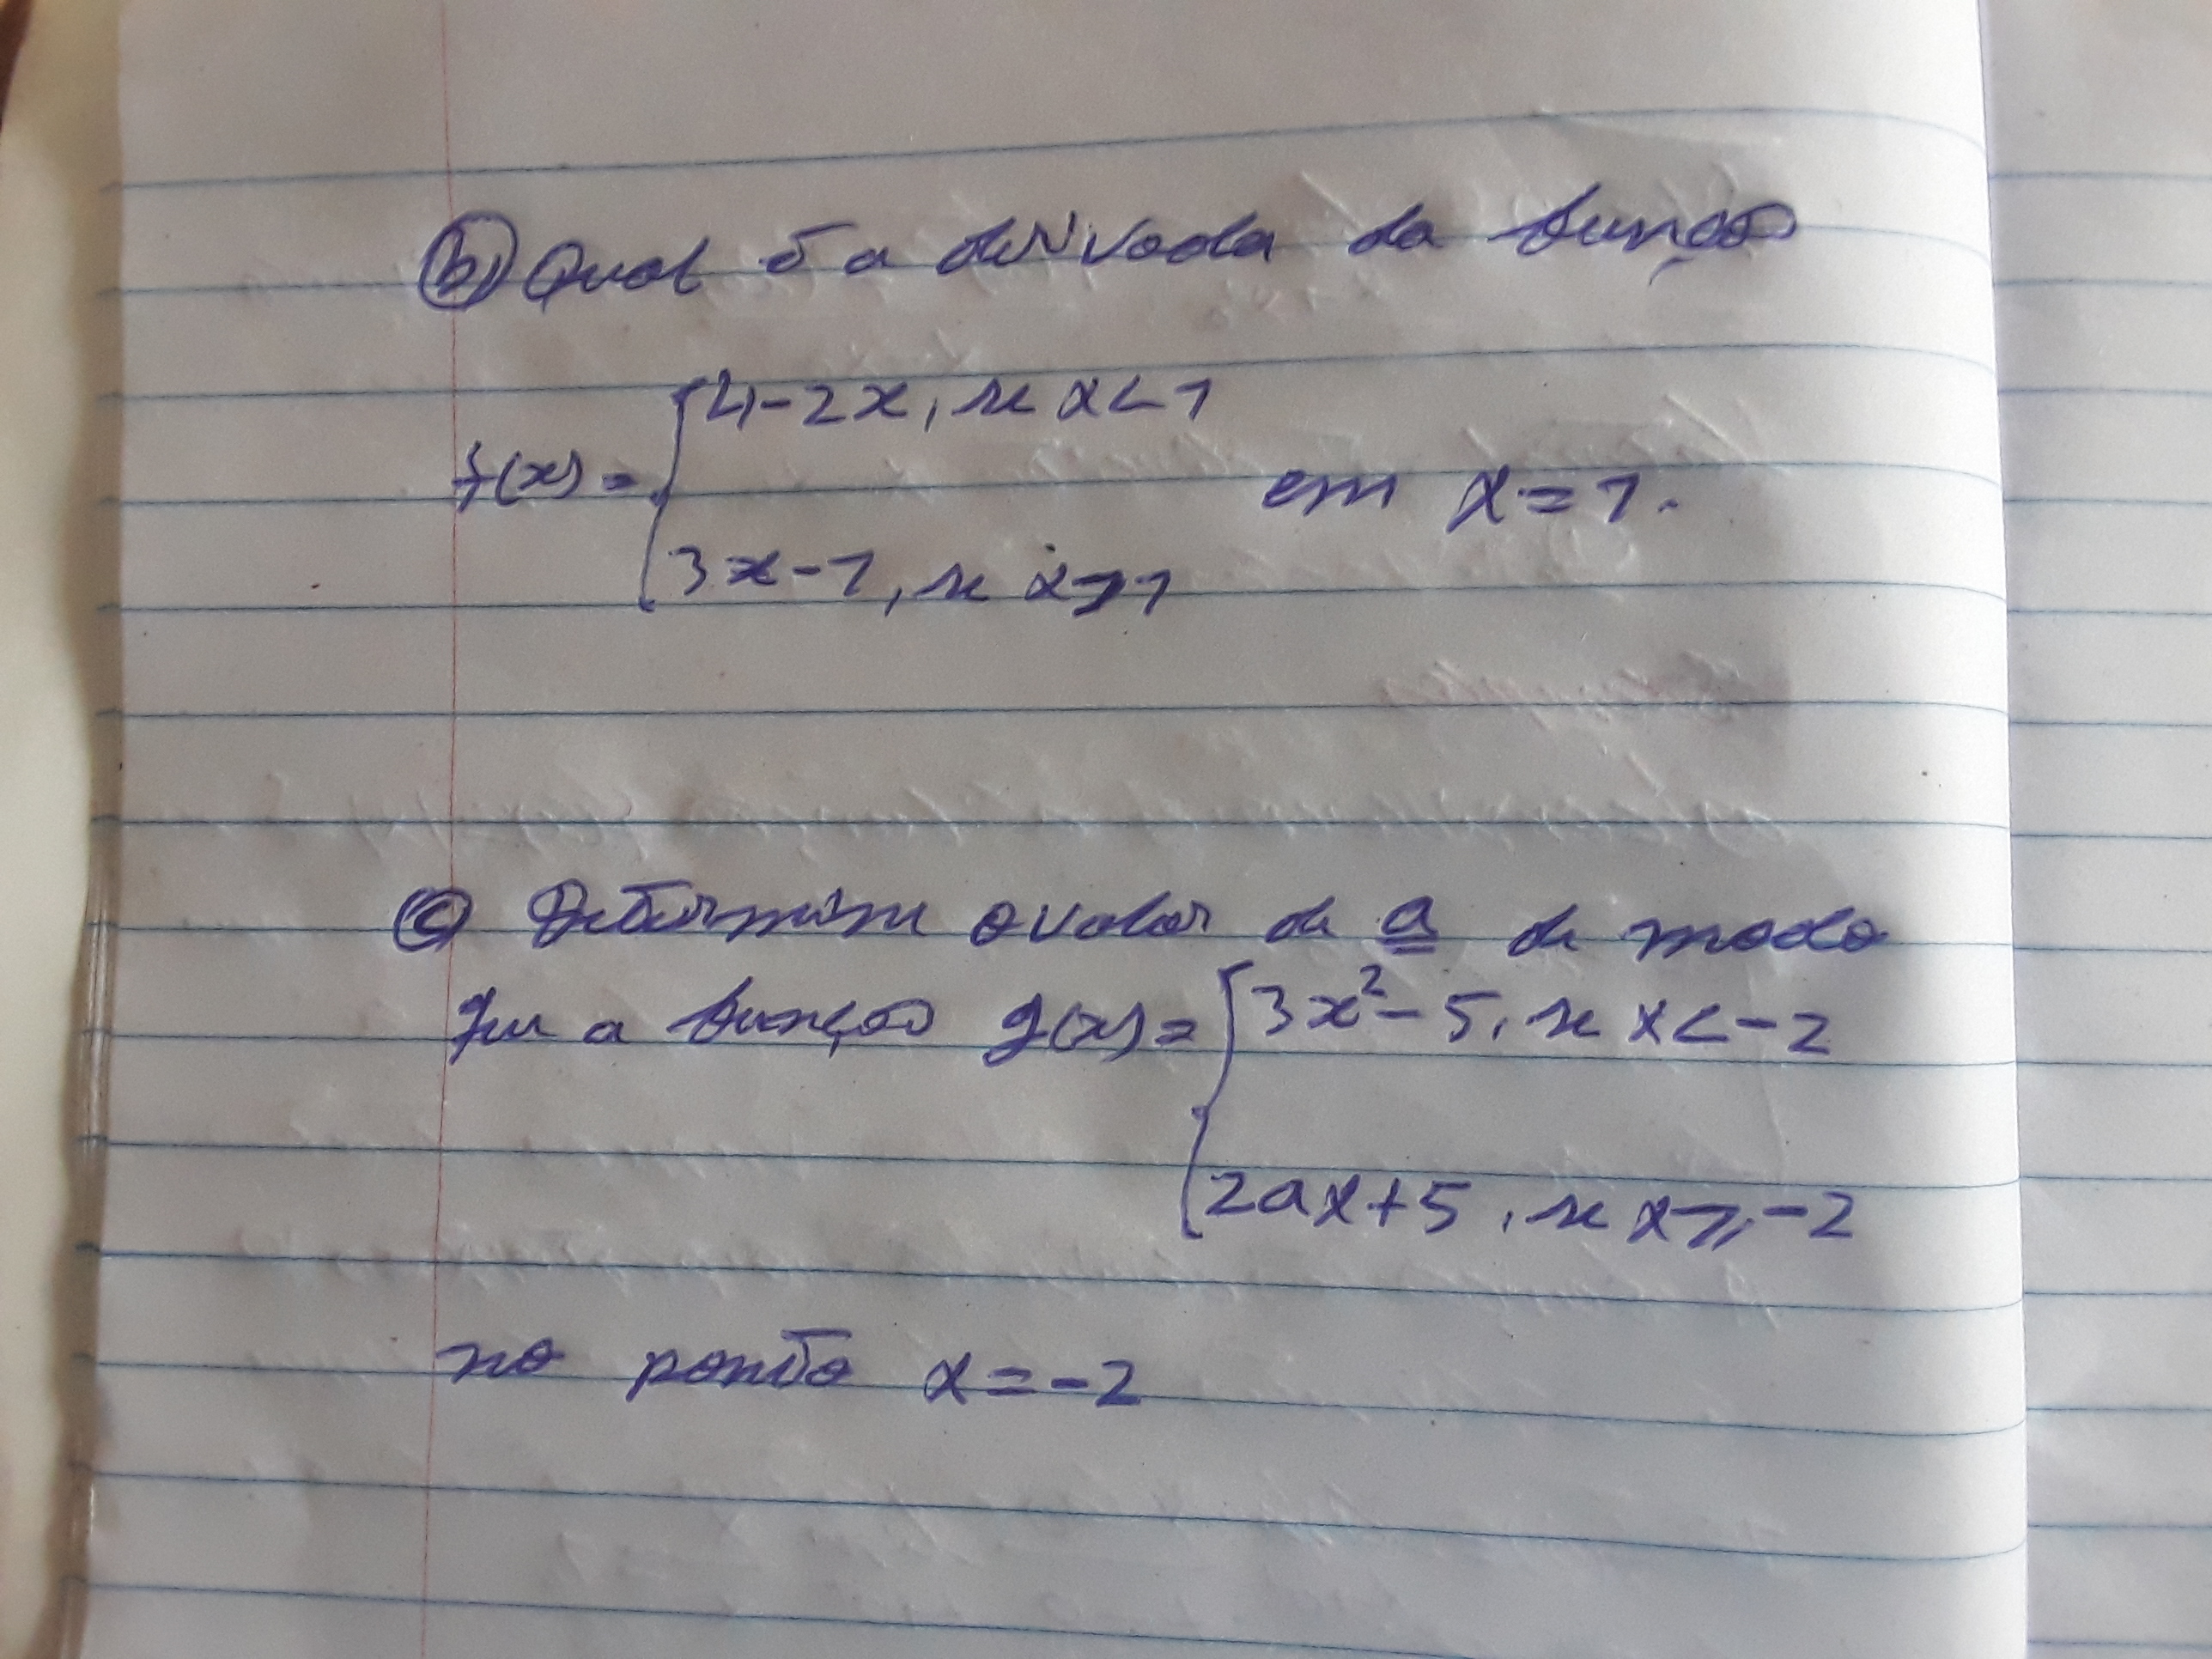 b) Qual é a derivada da função
f(x) = { 4-2x, se x<1
em x=1.
3x-1, se x>1
c) Determine o valor de a de modo
que a função g(x) = { 3x²-5, se x<-2
2ax+5, se x⩾-2
no ponto x=-2